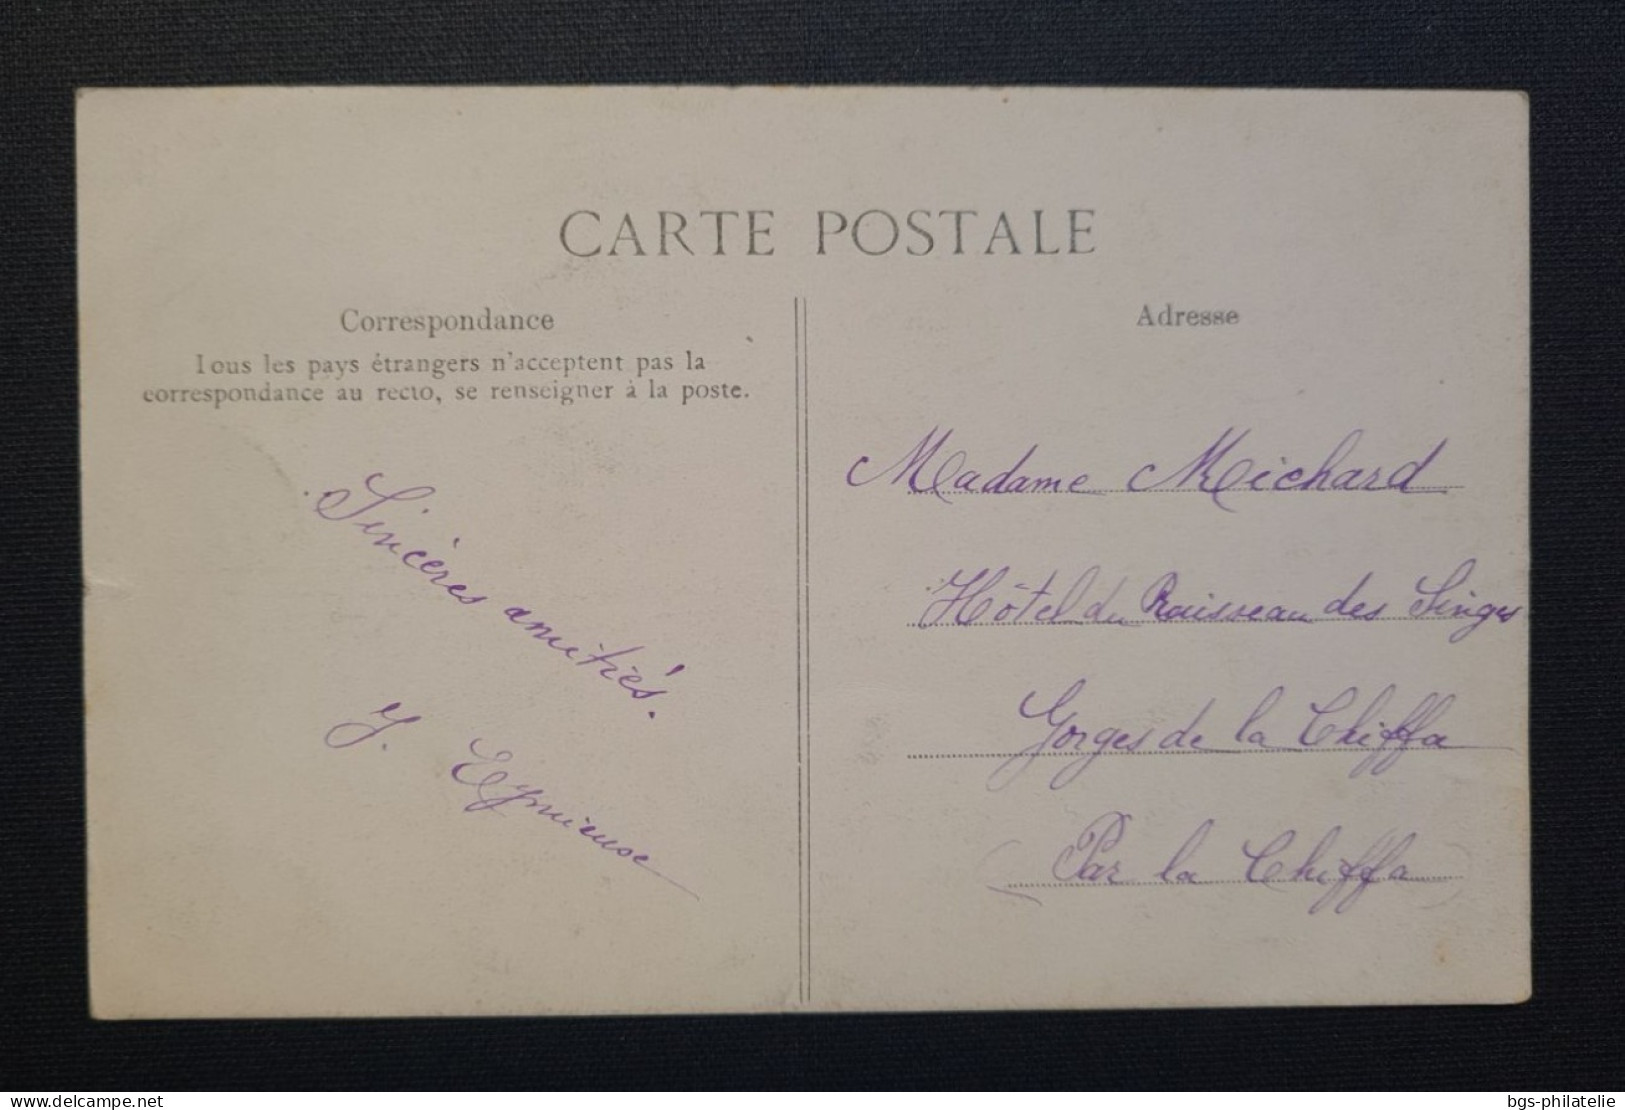 CARTE POSTALE
Correspondance
Tous les pays étrangers n'acceptent pas la
correspondance au recto, se renseigner à la poste.
Sincères amitiés.
Y. Eymieuse
Adresse
Madame Michard
Hôtel du Ruisseau des Singes
Gorges de la Chiffa
(Par la Chiffa)
delcampe.net
bgs-philatelie